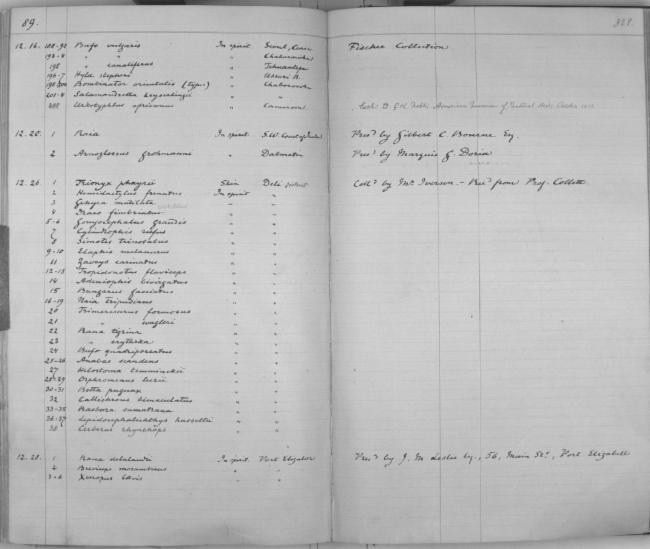 89.
328.
12. 16. 188-92 Bufo vulgaris In spirit Seoul, Corea Fischer Collection
193-4 " " " Chabarowka
195 " canaliferus " Tehuantepec
196-7 Hyla stepheni " Ussuri R.
198-200 Bombinator orientalis (types) " Chabarowka
201-4 Salamandrella keyserlingii " "
205 Uraeotyphlus africanus " Cameroon
12. 20. 1 Raia In spirit S.W. Coast of Pres.d by Gilbert C Bourne Esq.
2 Arnoglossus grohmanni " Dalmatia Pres.d by Marquis G. Doria
12. 26. 1 Trionyx phayrei Skin Deli Coll.d by Mr Iversen - Rec.d from Prof. Collett
2 Hemidactylus frenatus In spirit "
3 Gehyra mutilata " "
4 Draco fimbriatus " "
5-6 Gonyocephalus grandis " "
7 Cylindrophis rufus " "
8 Simotes trinotatus " "
9-10 Elaphis melanurus " "
11 Zaocys carinatus " "
12-13 Tropidonotus flaviceps " "
14 Adeniophis bivirgatus " "
15 Bungarus fasciatus " "
16-19 Naia tripudians " "
20 Trimeresurus formosus " "
21 " wagleri " "
22 Rana tigrina " "
23 " erythraea " "
24 Bufo quadriporcatus " "
25-26 Anabas scandens " "
27 Helostoma temminckii " "
28-29 Osphromenus " "
30-31 Betta pugnax " "
32 Callichrous bimaculatus " "
33-35 Rasbora sumatrana " "
36-37 Lepidocephalichthys hasseltii " "
38 Cerberus rhynchops " "
12. 28. 1 Rana delalandii In spirit Port Elizabeth Pres.d by J. M. Leslie Esq., 56, Main St., Port Elizabeth
2 Breviceps mossambicus " "
3-6 Xenopus laevis " "